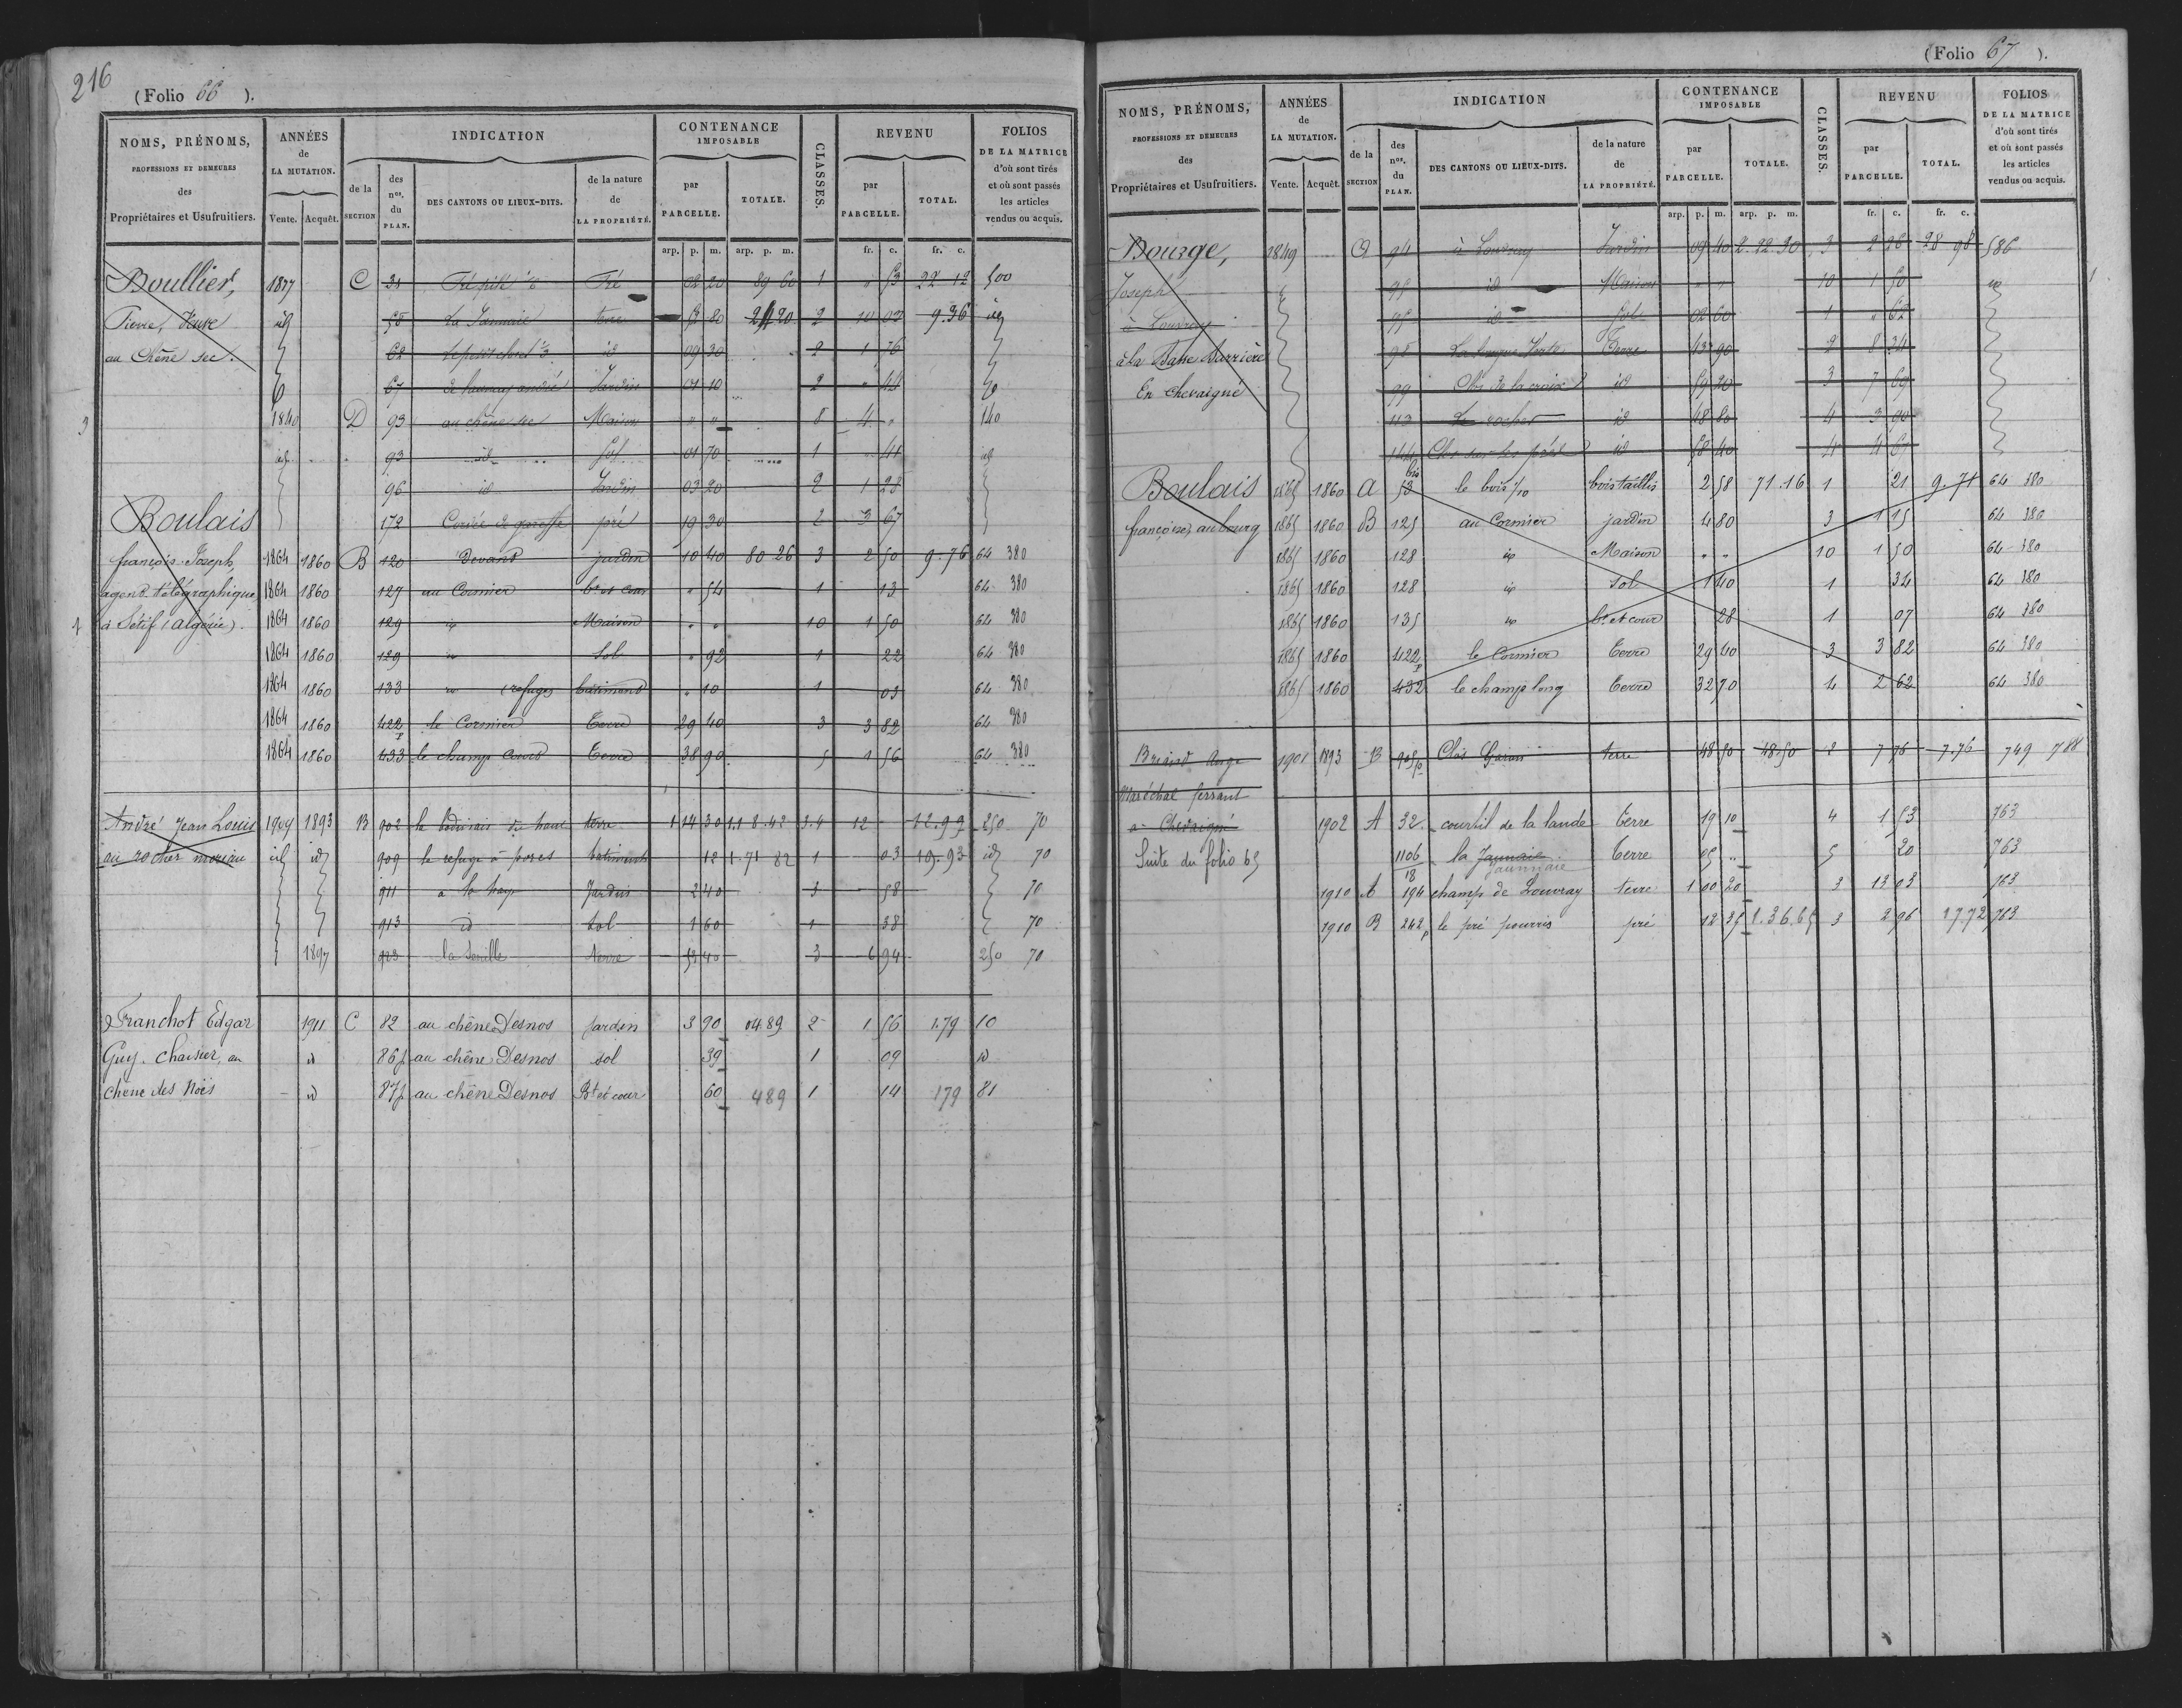 216
(Folio 66 ).
NOMS, PRÉNOMS, PROFESSIONS ET DEMEURES des Propriétaires et Usufruitiers.
ANNÉES de LA MUTATION. Vente. Acquêt.
INDICATION de la SECTION des nos. du PLAN. DES CANTONS OU LIEUX-DITS. de la nature de LA PROPRIÉTÉ.
CONTENANCE IMPOSABLE par PARCELLE. TOTALE.
CLASSES.
REVENU par PARCELLE. TOTAL.
FOLIOS DE LA MATRICE d'où sont tirés et où sont passés les articles vendus ou acquis.
arp. p. m. arp. p. m. fr. c. fr. c.
Boullier, C 31 Pré 02 20 89 60 1 " 53 22 12 500
Pierre, Veuve id 58 La Jannaie terre 51 80 2 10 02 9.36 id
au Chêne sec. 62 id 09 30 2 1 76
67 Jardin 01 10 2 " 44
1840 D 93 au chêne sec Maison " " 8 4 " 140
id 93 id Sol 01 70 1 " 41 id
96 id Jardin 03 20 2 1 28
Boulais 172 pré 19 30 2 3 67
françois Joseph, 1864 1860 B 120 Devant jardin 10 40 80 26 3 2 50 9.76 64 380
agent télégraphique, 1864 1860 127 au Cormier bt et cour " 54 1 13 64 380
à Sétif (algérie). 1864 1860 129 id Maison " " 10 1 50 64 380
1864 1860 129 id Sol " 92 1 22 64 380
1864 1860 133 id (refuge) batiment " 10 1 03 64 380
1864 1860 422p le Cormier Terre 29 40 3 3 82 64 380
1864 1860 433 le champ court Terre 38 90 5 1 56 64 380
André Jean Louis 1909 1893 B 902 terre 1 14 30 1.18.42 3.4 12 12.99 250 70
au rocher moriau id id 909 le refuge à porcs batiment 12 1.71 82 1 03 19.93 id 70
911 a la haye Jardin 2 40 3 58 70
913 id sol 1 60 1 38 70
1897 923 terre 53 40 3 6 94 250 70
Franchot Edgar 1911 C 82 au chêne Desnos jardin 3 90 04 89 2 1 56 1.79 10
Guy. Charier, au id 86p au chêne Desnos sol 39 1 09 id
chêne des Noës id 87p au chêne Desnos Bt et cour 60 489 1 14 179 81
(Folio 67 ).
NOMS, PRÉNOMS, PROFESSIONS ET DEMEURES des Propriétaires et Usufruitiers.
ANNÉES de LA MUTATION. Vente. Acquêt.
INDICATION de la SECTION des nos. du PLAN. DES CANTONS OU LIEUX-DITS. de la nature de LA PROPRIÉTÉ.
CONTENANCE IMPOSABLE par PARCELLE. TOTALE.
CLASSES.
REVENU par PARCELLE. TOTAL.
FOLIOS DE LA MATRICE d'où sont tirés et où sont passés les articles vendus ou acquis.
arp. p. m. arp. p. m. fr. c. fr. c.
Bourge, 1849 94 à Louvray Jardin 09 40 2 22 30 3 2 26 28 98 586
Joseph 95 id Maison " " 10 1 50 id
à Louvray 95 id Sol 02 60 1 " 62
à la Basse 98 Terre 43 90 2 8 34
En Chevaigné 99 Clos de la croix id 59 20 3 7 69
113 Le rocher id 48 80 4 3 90
144 Clos sur les prés id 58 40 4 4 67
Boulais 1865 1860 A 53 bis le bois 1/10 bois taillis 2 58 71.16 1 21 9.71 64 380
françoise, au bourg 1865 1860 B 125 au Cormier jardin 4 80 3 1 15 64 380
1865 1860 128 id Maison " " 10 1 50 64 380
1865 1860 128 id sol 1 40 1 34 64 380
1865 1860 135 id bt et cour 28 1 07 64 380
1865 1860 422p le Cormier Terre 29 40 3 3 82 64 380
1865 1860 432 le champ long Terre 32 70 4 2 62 64 380
Briand Ange 1901 1893 B 905p Clos Garan terre 48 50 48 50 2 7 76 7.76 749 788
Maréchal ferrant
à Chevaigné 1902 A 32 courtil de la lande terre 19 10 4 1 53 763
Suite du folio 65 1106/18 la Jaunaie terre 05 " 5 20 763
Jaunnaie
1910 A 194 champ de Louvray terre 1 00 20 3 13 03 763
1910 B 242p le pré pourris pré 12 35 1.36.65 3 2 96 17.72 763